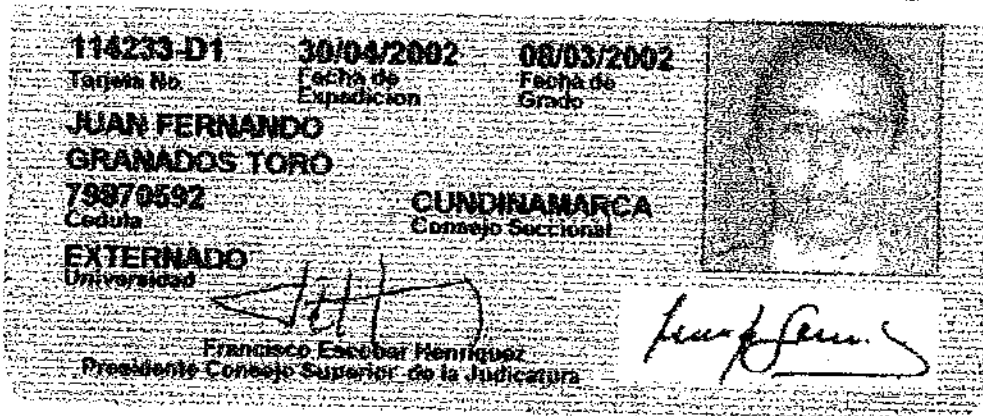 114233-D1 30/04/2002 08/03/2002
Tarjeta No. Fecha de Expedicion Fecha de Grado
JUAN FERNANDO
GRANADOS TORO
79870592
Cedula
CUNDINAMARCA
Consejo Seccional
EXTERNADO
Universidad
Francisco Escobar Henriquez
Presidente Consejo Superior de la Judicatura